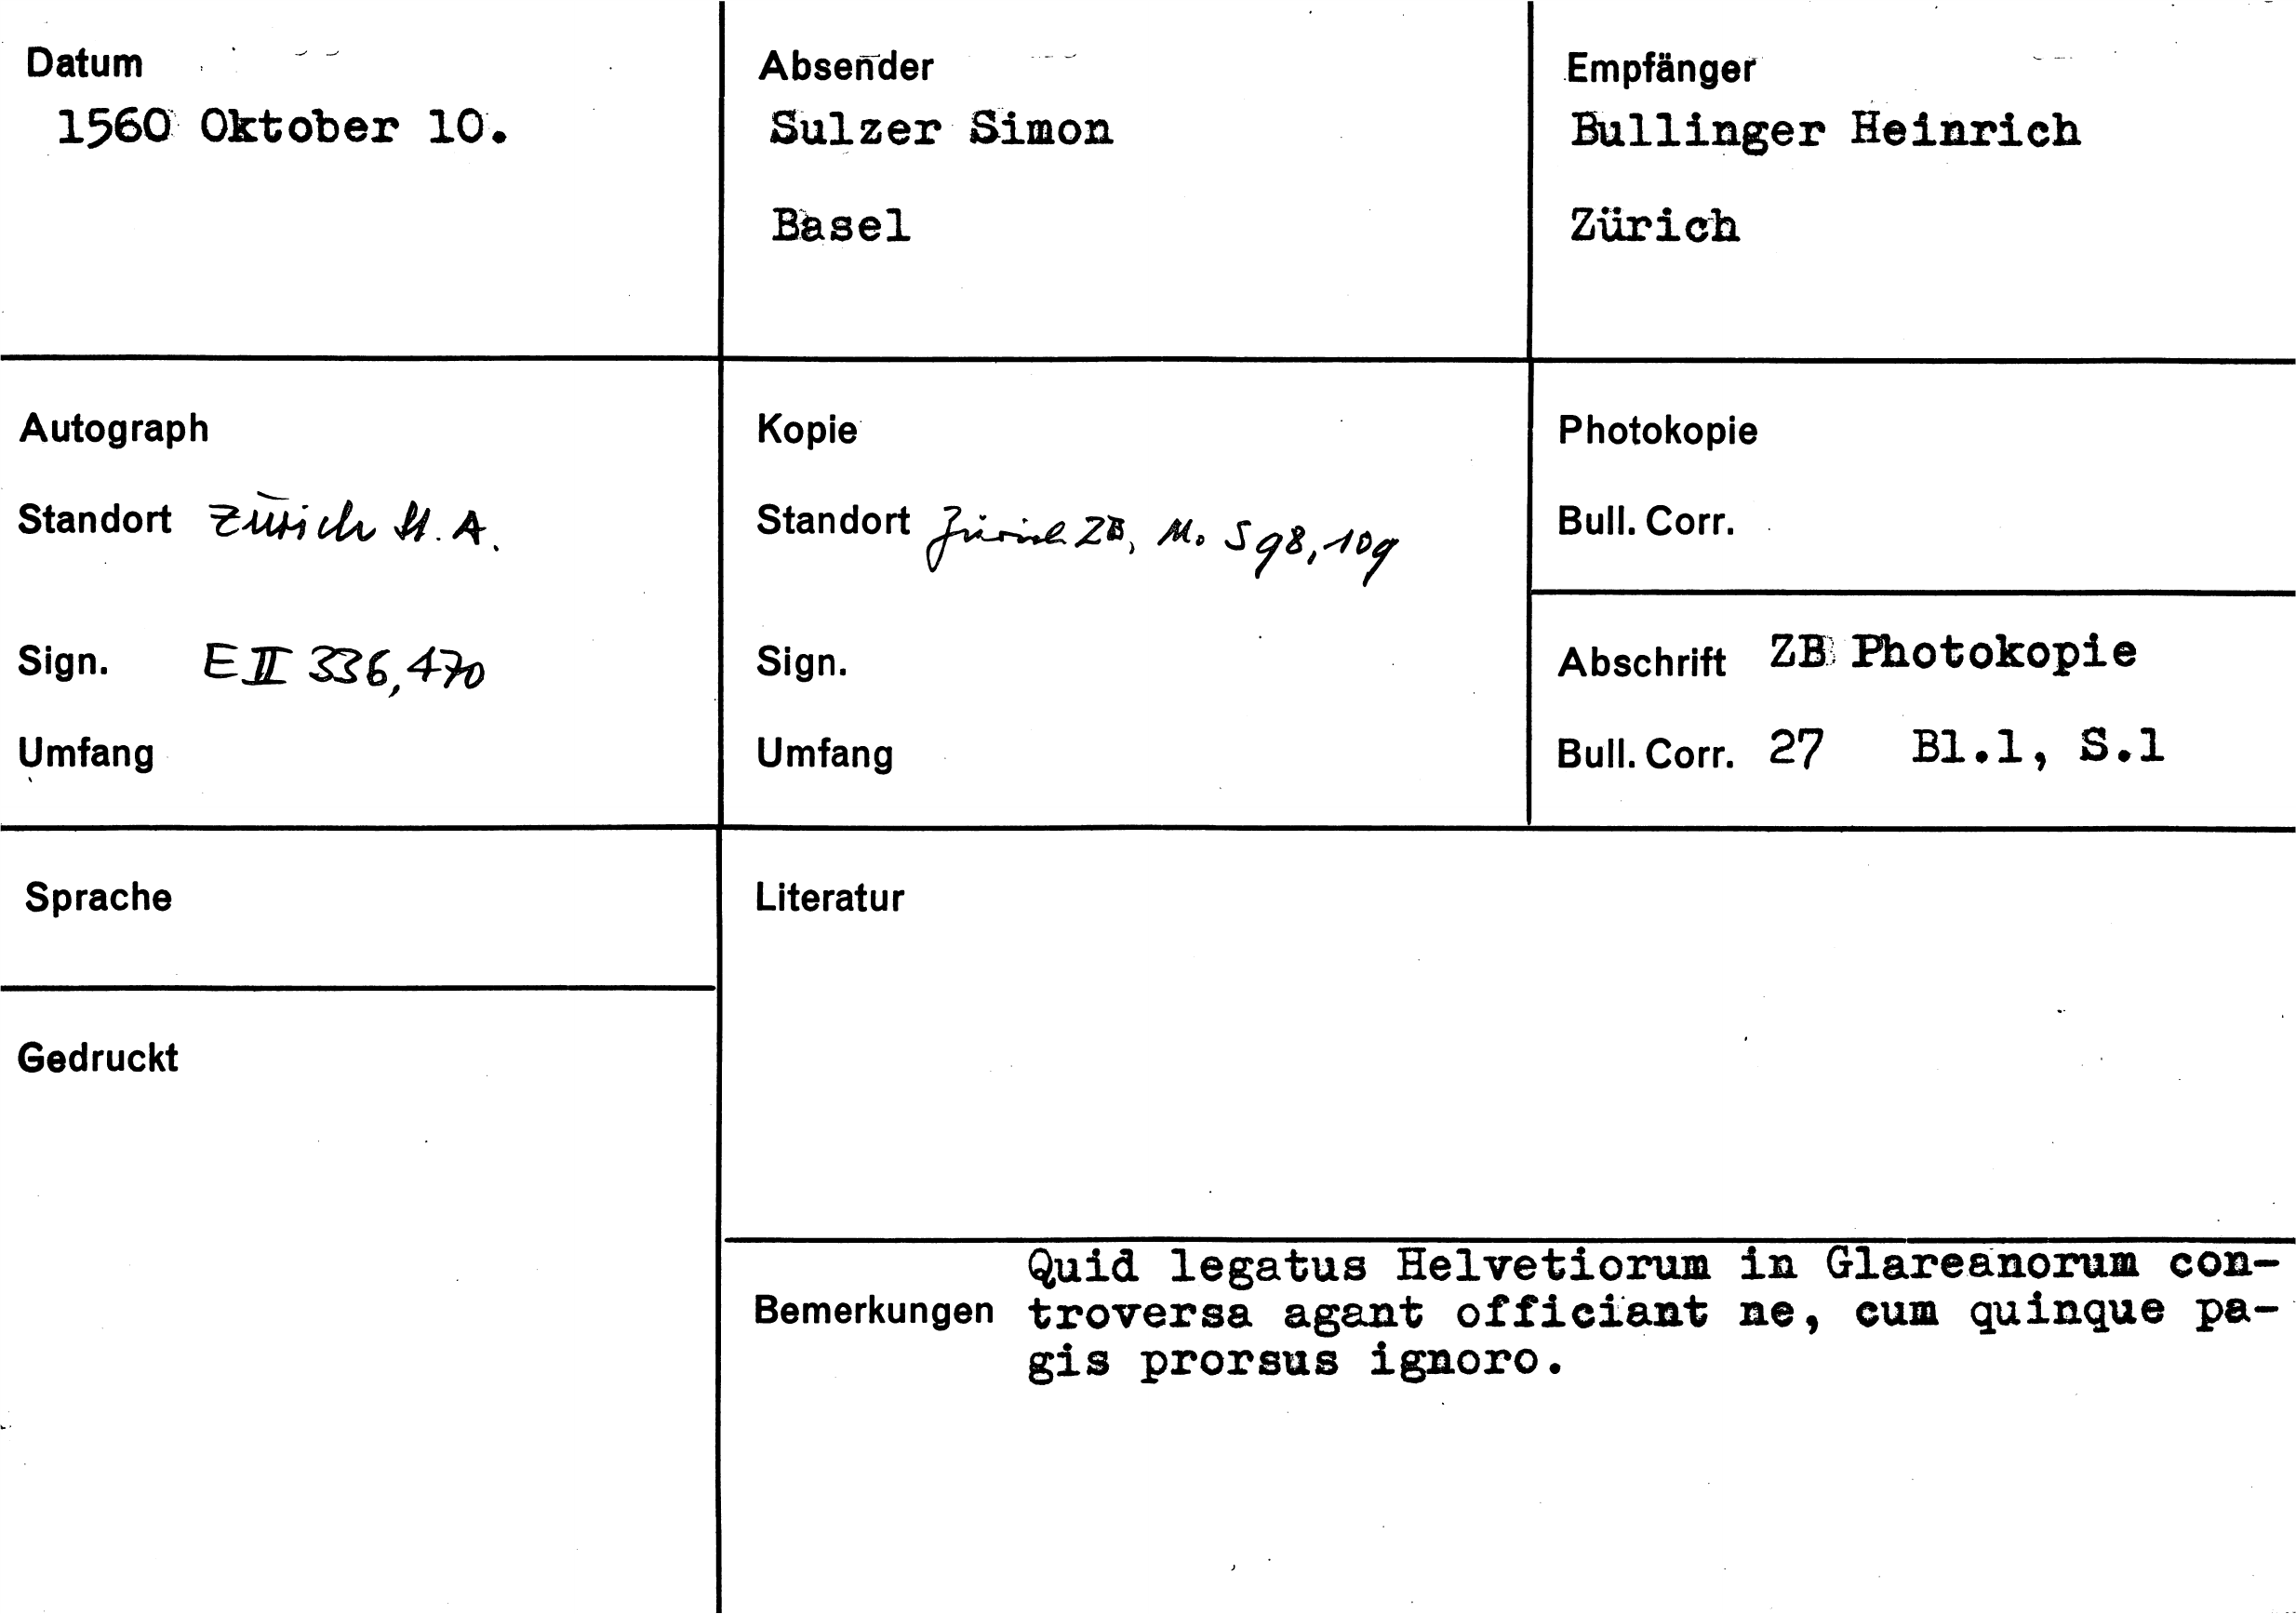 Datum
1560 Oktober 10.
Absender
Sulzer Simon
Basel
Empfänger
Bullinger Heinrich
Zürich
Autograph
Standort Zürich St. A.
Sign. E II 336,470
Umfang
Kopie
Standort Zürich ZB, Ms S 98, 109
Sign.
Umfang
Photokopie
Bull. Corr.
Abschrift ZB Photokopie
Bull. Corr. 27 Bl.1, S.1
Sprache
Gedruckt
Literatur
Bemerkungen
Quid legatus Helvetiorum in Glareanorum con-
troversa agant officiant ne, cum quinque pa-
gis prorsus ignoro.